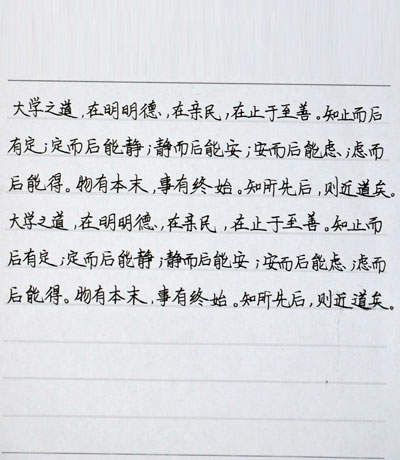 大学之道,在明明德,在亲民,在止于至善。知止而后
有定;定而后能静;静而后能安;安而后能虑;虑而
后能得。物有本末,事有终始。知所先后,则近道矣。
大学之道,在明明德,在亲民,在止于至善。知止而
后有定;定而后能静;静而后能安;安而后能虑;虑而
后能得。物有本末,事有终始。知所先后,则近道矣。